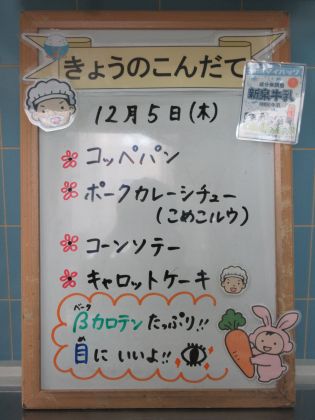 きょうのこんだて
12月5日(木)
コッペパン
ポークカレーシチュー
(こめこルウ)
コーンソテー
キャロットケーキ
ベータ
βカロテン たっぷり!!
め
目にいいよ!!
新泉牛乳